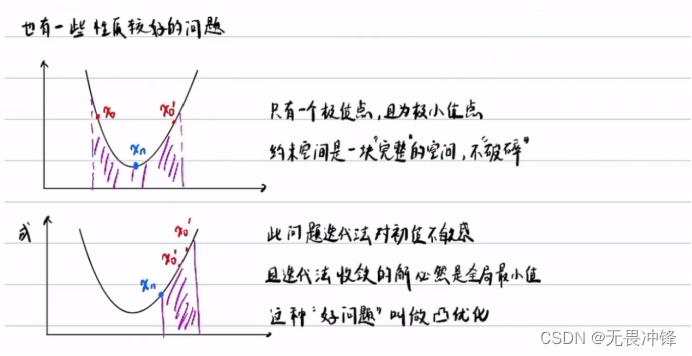 也有一些性质较好的问题
x₀ x₀'
xₙ
只有一个极值点，且为极小值点
约束空间是一块"完整"的空间，不"破碎"
或
x₀'
x₀'
xₙ
此问题迭代法对初值不敏感
且迭代法收敛的解必然是全局最小值
这种"好问题"叫做凸优化
CSDN @无畏冲锋